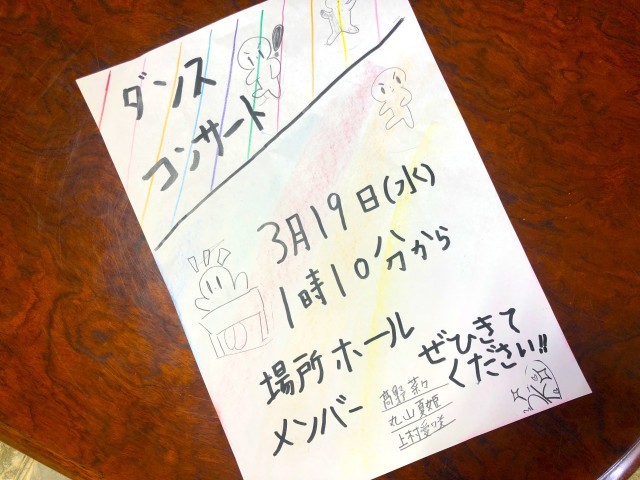 ダンス
コンサート
3月19日(水)
1時10分から
場所 ホール
ぜひきて
ください!!
メンバー
髙野菜々
丸山夏姫